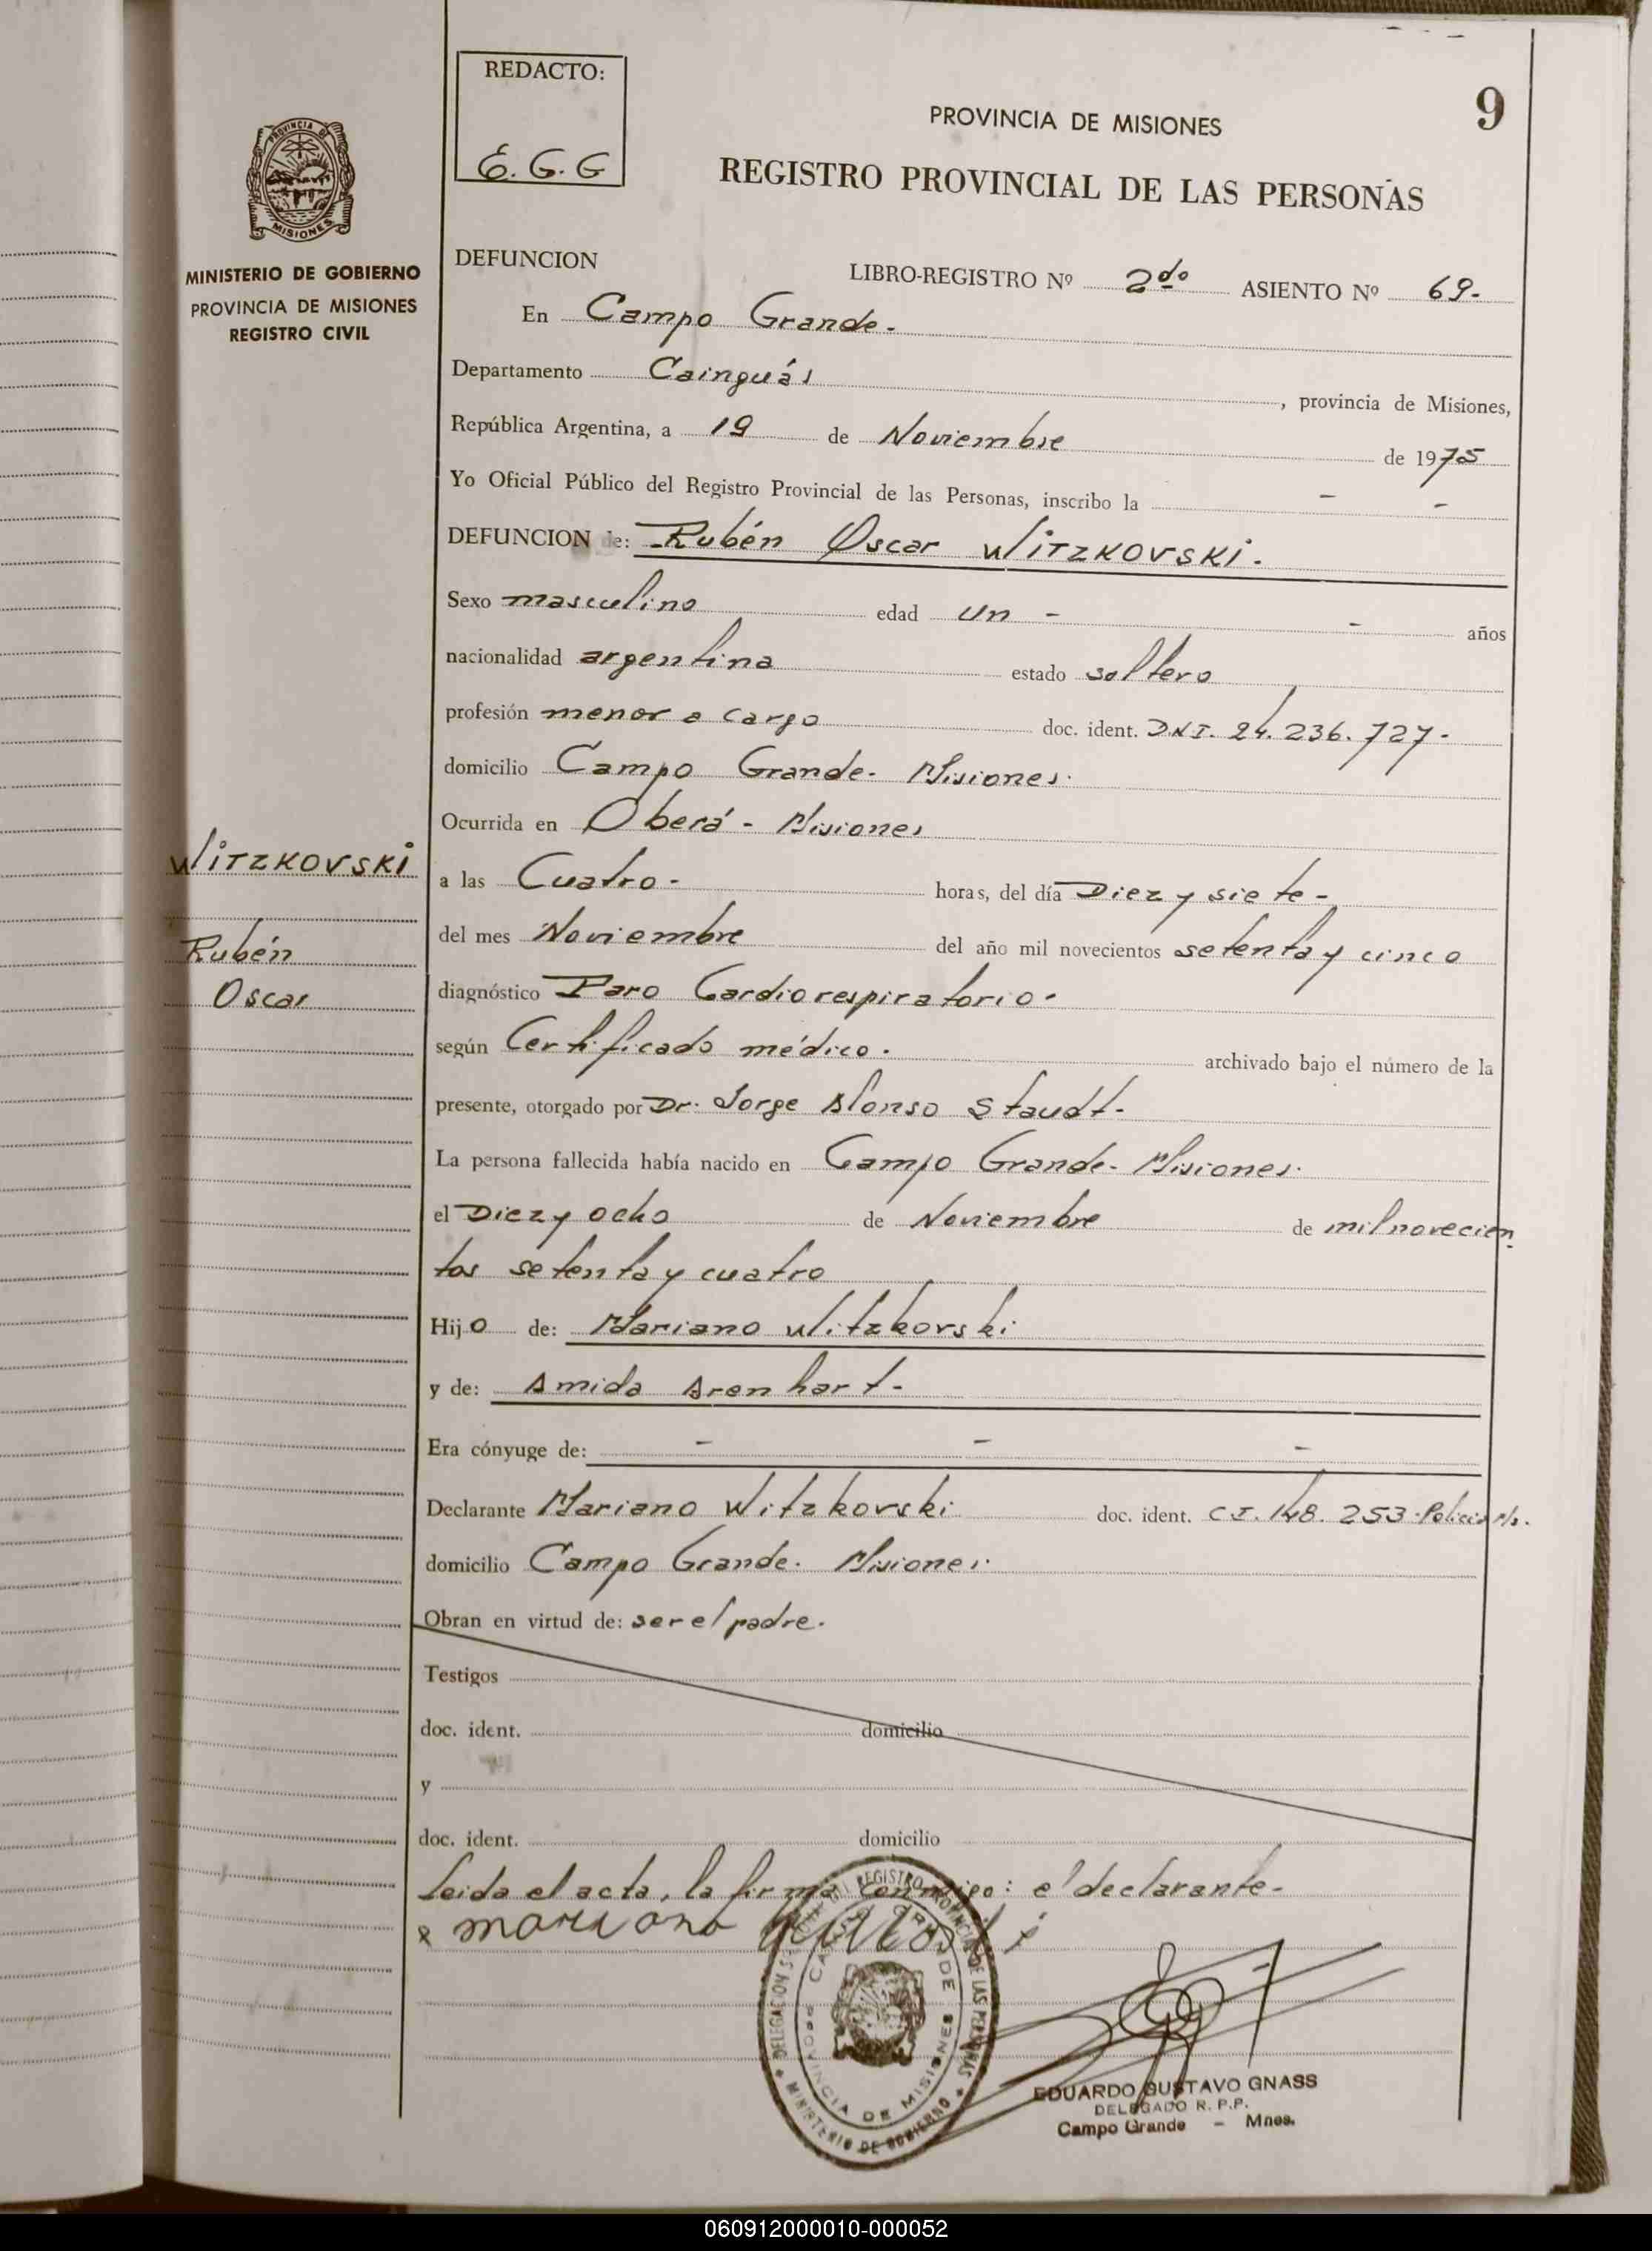 REDACTO:
E. G. G
9
PROVINCIA DE MISIONES
REGISTRO PROVINCIAL DE LAS PERSONAS
PROVINCIA DE
MISIONES
MINISTERIO DE GOBIERNO
PROVINCIA DE MISIONES
REGISTRO CIVIL
DEFUNCION LIBRO-REGISTRO Nº 2do ASIENTO Nº 69.-
En Campo Grande.-
Departamento Cainguás, provincia de Misiones,
República Argentina, a 19 de Noviembre de 1975
Yo Oficial Público del Registro Provincial de las Personas, inscribo la - -
DEFUNCION de: Rubén Oscar WITZKOVSKI.
Sexo masculino edad un - - años
nacionalidad argentina estado soltero
profesión menor a cargo doc. ident. D.N.I. 24.236.727-
domicilio Campo Grande- Misiones.
Ocurrida en Oberá - Misiones
WITZKOVSKI
Rubén
Oscar
a las Cuatro- horas, del día Diez y siete-
del mes Noviembre del año mil novecientos setenta y cinco
diagnóstico Paro Cardiorespiratorio.
según Certificado médico. archivado bajo el número de la
presente, otorgado por Dr. Jorge Alonso Staudt-
La persona fallecida había nacido en Campo Grande- Misiones.
el Diez y ocho de Noviembre de mil novecien
tos setenta y cuatro
Hijo de: Mariano Witzkovski
y de: Amida Arenhart-
Era cónyuge de: - - -
Declarante Mariano Witzkovski doc. ident. C.I. 148.253. Policia Ms.
domicilio Campo Grande. Misiones.
Obran en virtud de: ser el padre.
Testigos
doc. ident. domicilio
y
doc. ident. domicilio
Leida el acta, la firma conmigo: el declarante-
x mariano
DELEGACION REGISTRO PROVINCIAL DE LAS PERSONAS
MINISTERIO DE GOBIERNO
CAMPO GRANDE
PROVINCIA DE MISIONES
EDUARDO GUSTAVO GNASS
DELEGADO R. P.P.
Campo Grande - Mnes.
060912000010-000052